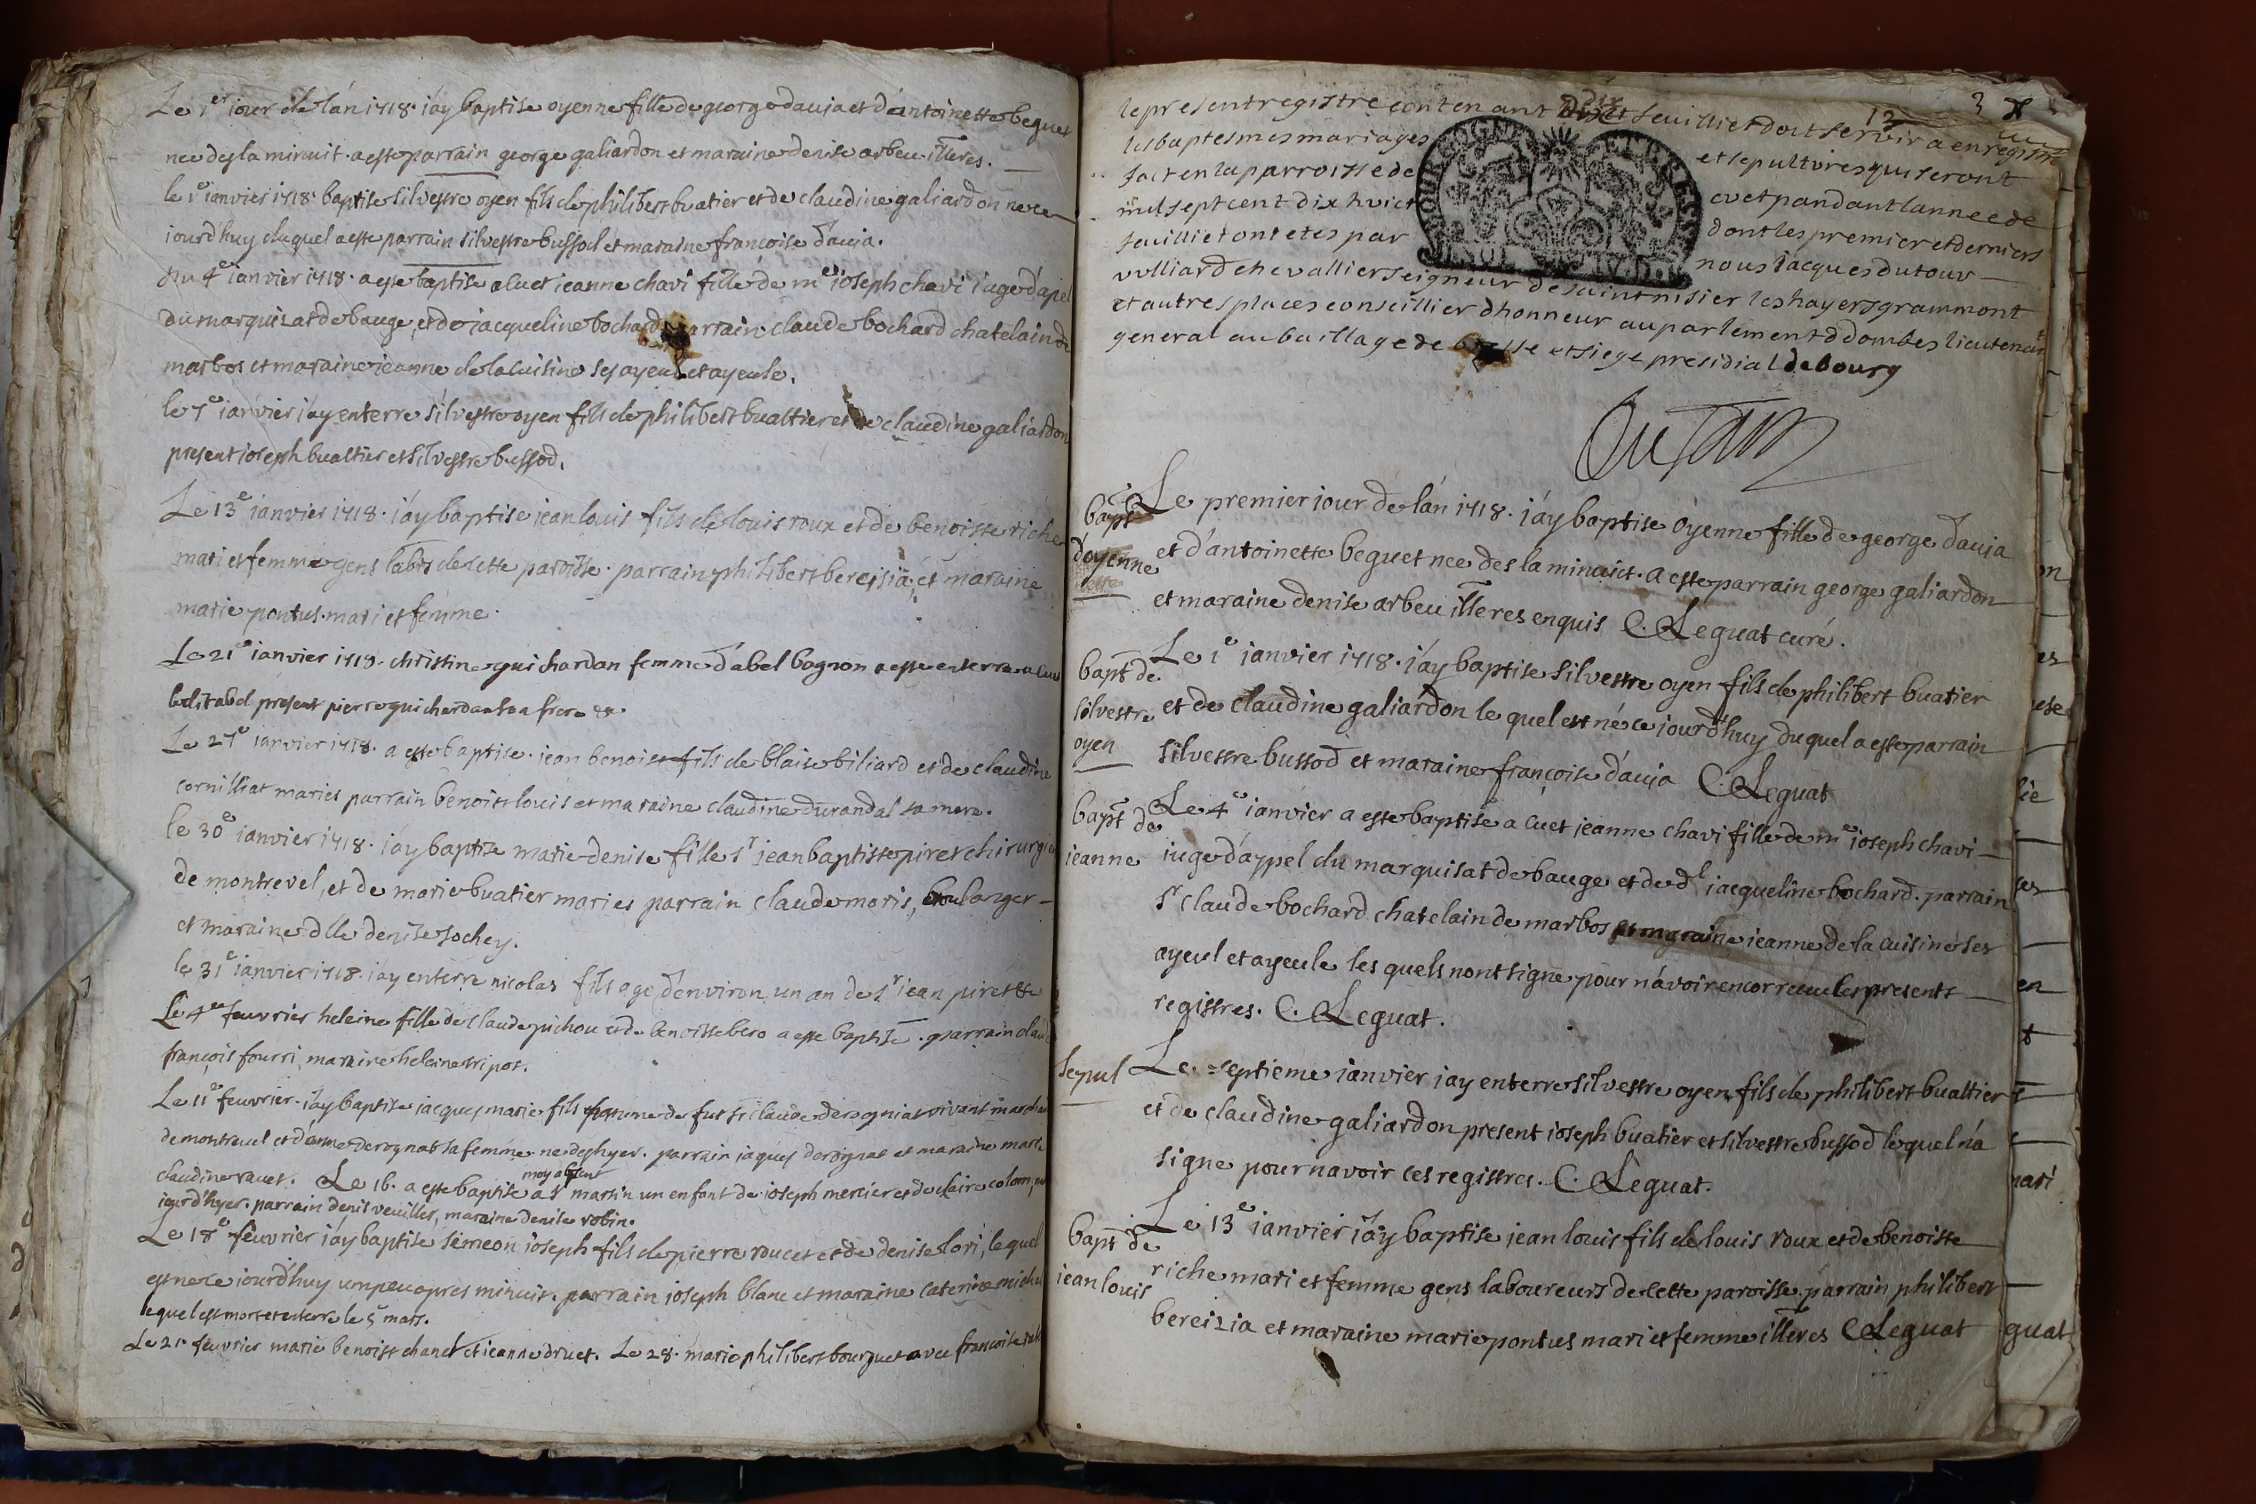 Le 1er iour de lán 1718. iáy baptise oyenne fille de george dauja et dántoinette beguet
nee des la minuit. a este parrain george galiardon et maraine denise arbeu. illeres.
le 1e ianvier 1718. baptise silvestre oyen fils de philibert buatier et de claudine galiardon ne ce
iourdhuy duquel a este parrain silvestre bussod et maraine francoise dauja.
du 4e ianvier 1718. a este baptise a cuet jeanne chavi fille de me ioseph chavi iuge dápel
du marquizat de bauge, et de jacqueline bochard parrain claude bochard chatelain de
marbos et maraine jeanne de la cuisine ses ayeul et ayeule.
le 7e ianvier iáy enterre silvestre oyen fils de philibert bualtier et de claudine galiardon
present ioseph bualtier et silvestre bussod.
Le 13e ianvier 1718. iáy baptise jean louis fils de louis roux et de benoiste riche
mari et femme gens labrs de cette paroisse. parrain philibert bereisia, et maraine
marie pontus. mari et femme.
Le 21e ianvier 1718. christine guichardan femme d'abel bagnon a este enterree a cuet
ledit abel present pierre guichardan son frere &.
Le 27e ianvier 1718. a este baptise. jean benoist fils de blaise biliard et de claudine
cornilliat maries parrain benoist louis et maraine claudine durandal sa mere.
le 30e ianvier 1718. iay baptise marie denise fille sr jean baptiste piret chirurgien
de montrevel, et de marie buatier maries parrain claude moris, boulanger
et maraine dlle denise sochey.
le 31e ianvier 1718. iay enterre nicolas fils age dénviron un an de sr jean piret &c
Le 4e feuvrier heleine fille de claude pichou et de benoiste bero a este baptise. parrain claude
françois fourri, maraine heleine tripot.
Le 11e feuvrier. iáy baptise jacques marie fils de fut sr claude derognat vivant marchand
de montrevel et dánne derognat sa femme ne des hyer. parrain iaques derognat et maraine marie
claudine ravet. Le 16. a este baptise a st martin un enfant de ioseph mercier et de claire colomb, ne
moy absent
iourdhyer. parrain denis veuillet, maraine denise robin.
Le 18e feuvrier iáy baptise simeon ioseph fils de pierre roucet et de denise lori, lequel
est ne ce iourdhuy un peu apres minuit. parrain ioseph blanc et maraine caterine michel
lequel est mort et enterre le 5 mars.
Le 21e feuvrier marie benoist chanel et ieanne druet. Le 28. marie philibert bourguet avec francoise
3
12
le present registre contenant dix et feuilliet doit servir a enregistrer
les baptesmes mariages et sepultures qui seront
fait en la parroisse de cuet pandant lannee de
mil sept cent dix huict dont les premier et derniers
feuilliet ont etes par nous Jacques dutour
vulliard chevallier seigneur de saint nisier les hayers grammont
et autres places conseillier dhonneur au parlement d dombes lieutenant
general au baillage de bresse et siege presidial de bourg
Dutour
bapt
dóyenne
Le premier iour de lán 1718. iáy baptise óyenne fille de george dauja
et dántoinette beguet nee des la minuict. a este parrain george galiardon
et maraine denise arbeu illeres enquis C. Leguat curé.
bapt de
silvestre
oyen
Le 1e ianvier 1718. iáy baptise silvestre oyen fils de philibert buatier
et de claudine galiardon le quel est né ce iourdhuy duquel a este parrain
silvestre bussod et maraine françoise dauja C. Leguat
bapt de
ieanne
Le 4e ianvier a este baptise a cuet jeanne chavi fille de me ioseph chavi
iuge dáppel du marquisat de bauge et de dl jacqueline bochard. parrain
sr claude bochard chatelain de marbos et maraine ieanne de la cuisine ses
ayeul et ayeule les quels nont signe pour návoir encor receu les presents
registres. C. Leguat.
sepul
Le septieme ianvier iay enterre silvestre oyen fils de philibert bualtier
et de claudine galiardon present ioseph buatier et silvestre bussod lequel ná
signe pour navoir ces registres. C. Leguat.
bapt de
iean louis
Le 13e ianvier iáy baptise jean louis fils de louis roux et de benoiste
riche mari et femme gens laboureurs de cette paroisse. parrain philibert
bereizia et maraine marie pontus mari et femme illeres C Leguat
guat